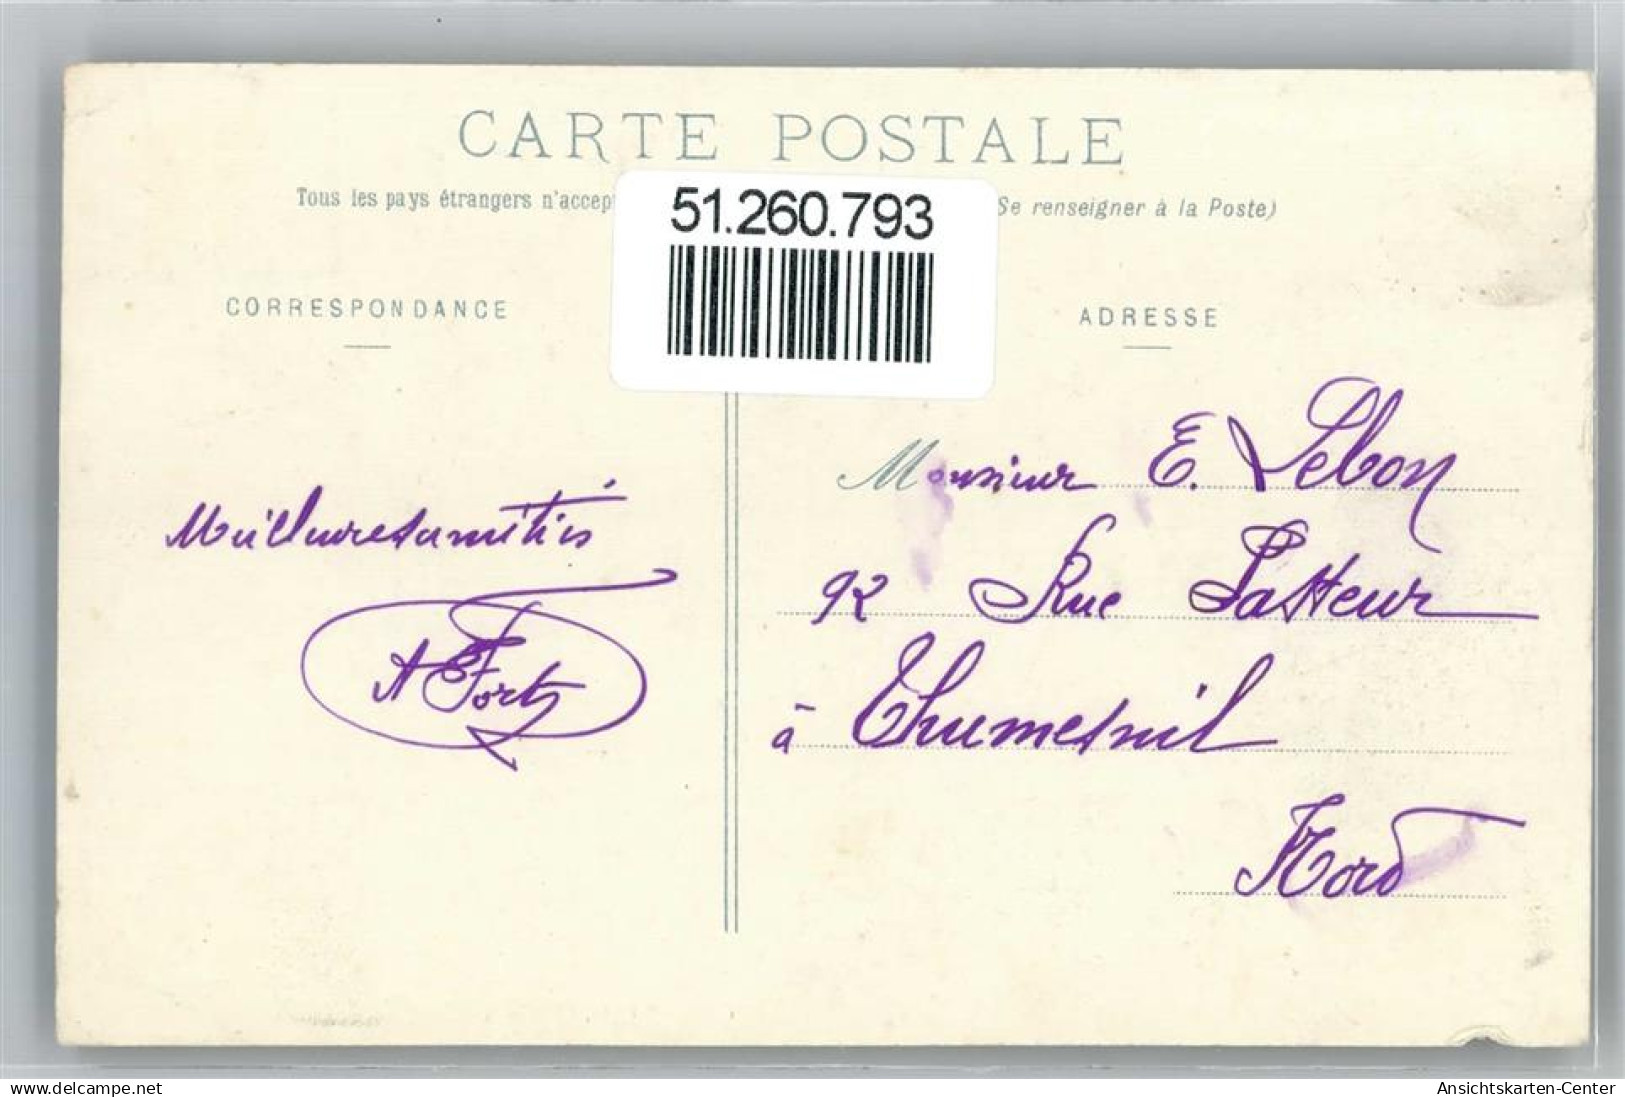 CARTE POSTALE
Tous les pays étrangers n'accep
Se renseigner à la Poste)
51.260.793
CORRESPONDANCE
ADRESSE
Monsieur E. Lebon
92 Rue Pasteur
à Thumesnil
Nord
Meilleures amitiés
A Forts
www.delcampe.net
Ansichtskarten-Center